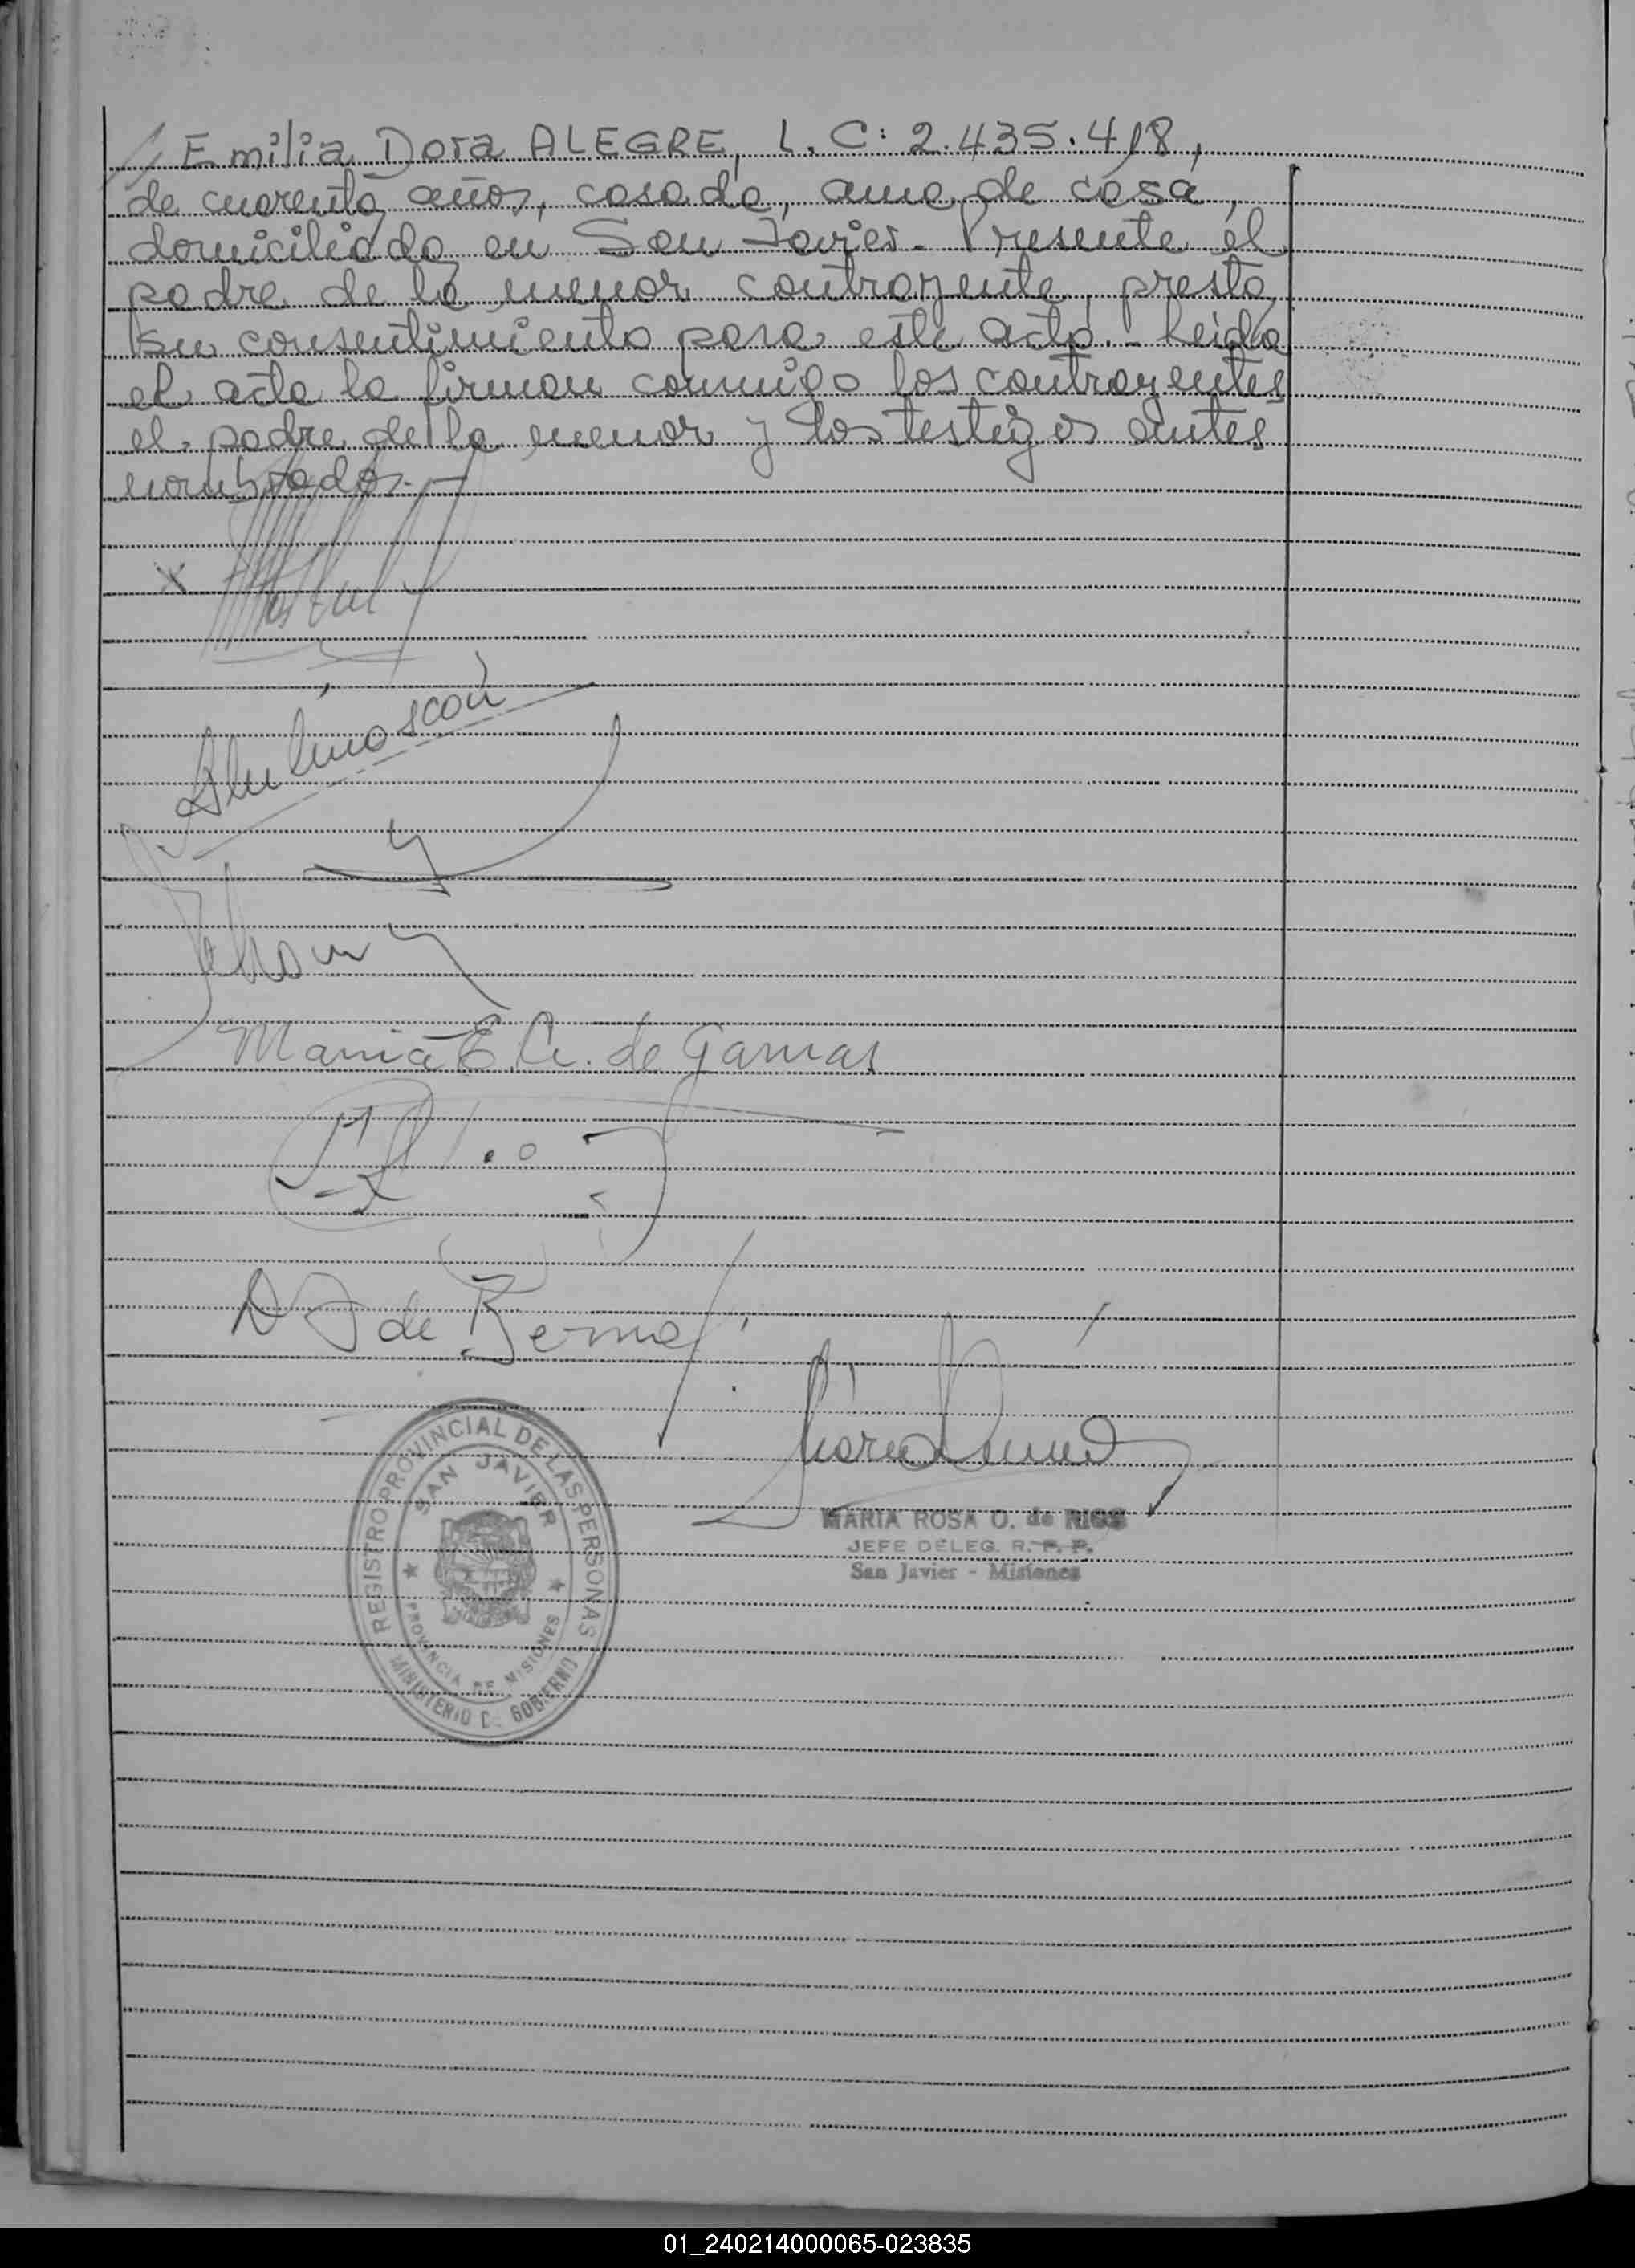 // Emilia Dora ALEGRE, L. C: 2.435.418,
de cuarenta años, casada, ama de casa,
domiciliada en San Javier. Presente el
padre de la menor contrayente, presta
su consentimiento para este acto.- Leida
el acta la firman conmigo los contrayentes
el padre de la menor y los testigos antes
nombrados.-
X
Maria E. A. de Gamas
de
REGISTRO PROVINCIAL DE LAS PERSONAS
SAN JAVIER
PROVINCIA DE MISIONES
MINISTERIO D. GOBIERNO
MARIA ROSA O. de RIOS
JEFE DELEG. R. P. P.
San Javier - Misiones
01_240214000065-023835